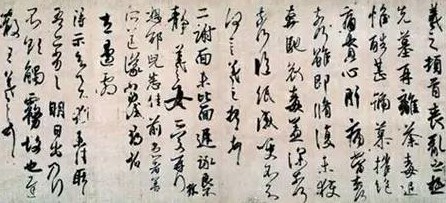 羲之頓首喪亂之極
先墓再離荼毒追
惟酷甚號慕摧絶
痛貫心肝痛當奈何
奈何雖即脩復未獲
奔馳哀毒益深奈何
奈何臨紙感哽不知
何言羲之頓首頓首
二謝面未比面遲詠良
靜羲之女愛再拜
想邵兒悉佳前患者善
左邊劇
得示知足下猶未佳耿
耿吾亦劣劣明日出乃行
不欲觸霧故也遲
散王羲之頓首